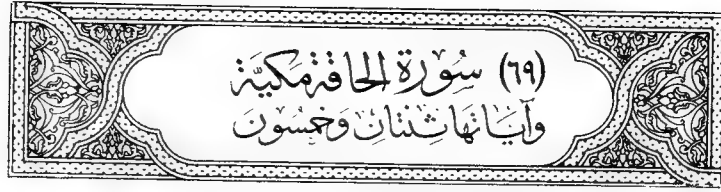 (٦٩) سُورَة الحَاقة مَكيَّة
وَآيَاتهَا ثِنْتَانِ وَخَمْسُونَ